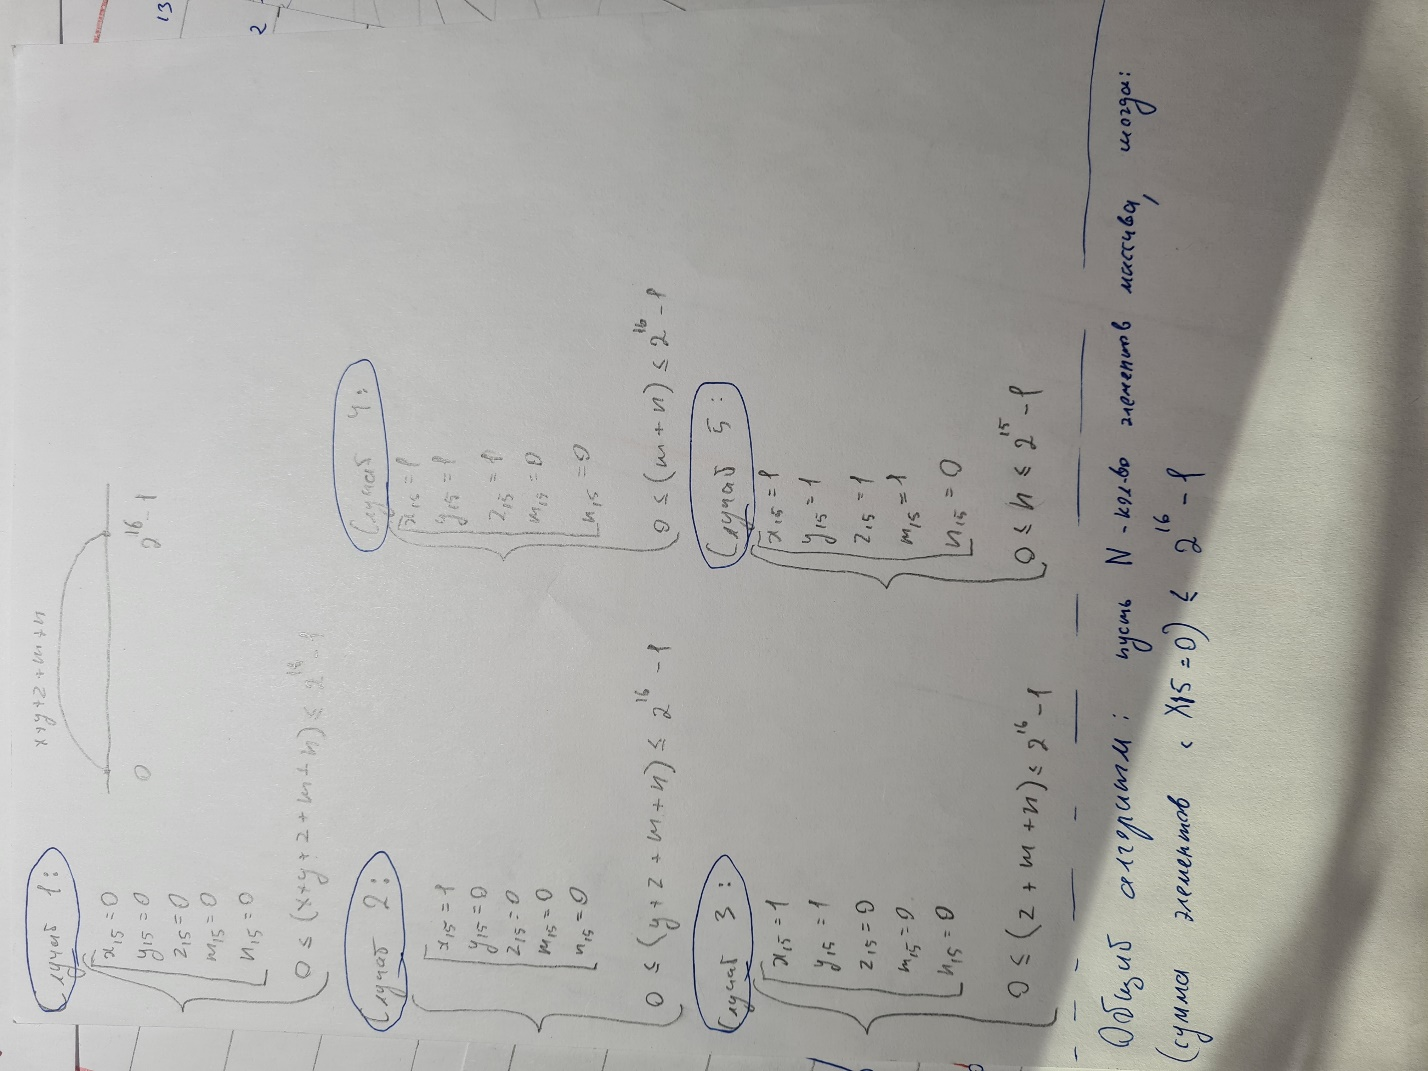 x+y+z+m+n
0
2^16-1
Случай 1:
x15=0
y15=0
z15=0
m15=0
n15=0
0 ≤ (x+y+z+m+n) ≤ 2^16-1
Случай 2:
x15=1
y15=0
z15=0
m15=0
n15=0
0 ≤ (y+z+m+n) ≤ 2^16-1
Случай 3:
x15=1
y15=1
z15=0
m15=0
n15=0
0 ≤ (z+m+n) ≤ 2^16-1
Случай 4:
x15=1
y15=1
z15=1
m15=0
n15=0
0 ≤ (m+n) ≤ 2^16-1
Случай 5:
x15=1
y15=1
z15=1
m15=1
n15=0
0 ≤ n ≤ 2^15-1
Общий алгоритм: пусть N - кол-во элементов массива, тогда:
(сумма элементов с x15=0) ≤ 2^16-1
13
2